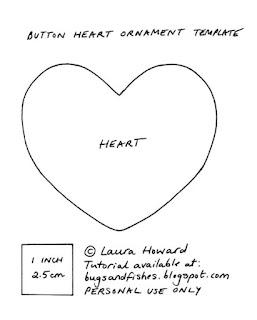 BUTTON HEART ORNAMENT TEMPLATE
HEART
1 INCH
2.5cm
© Laura Howard
Tutorial available at:
bugsandfishes.blogspot.com
PERSONAL USE ONLY